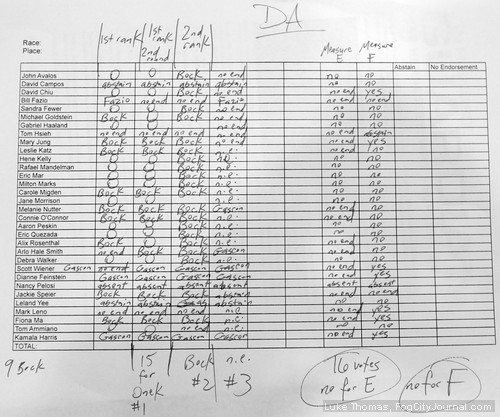 DA
Race:
Place:
1st rank
1st rank 2nd round
2nd rank
Measure E
Measure F
Abstain
No Endorsement
John Avalos O O Bock no end no no
David Campos abstain abstain abstain abstain no no
David Chiu O O Bock no end no end yes
Bill Fazio Fazio no end no end Fazio no end no end
Sandra Fewer O O Bock no end no no
Michael Goldstein Bock Bock no end no no
Gabriel Haaland O O no end no no
Tom Hsieh no end no end no end no end no end abstain
Mary Jung Bock Bock no end no end yes
Leslie Katz Bock Bock Bock n.e. no end no
Hene Kelly O O Bock n.e. no no
Rafael Mandelman O O Bock n.e. no no
Eric Mar O O Bock n.e. no no
Milton Marks O O Bock n.e. no no
Carole Migden Bock Bock Bock n.e. no no
Jane Morrison O O n.e. no no
Melanie Nutter Bock Bock Bock Gascon no end no
Connie O'Connor Bock Bock Bock n.e. no end no
Aaron Peskin O O Bock n.e. no no
Eric Quezada O O Bock n.e. no no
Alix Rosenthal Bock Bock Bock n.e. no end no
Arlo Hale Smith no end Bock Bock Gascon no no
Debra Walker O O Bock n.e. no no
Scott Wiener Gascon no end Gascon Gascon Gascon no end yes
Dianne Feinstein Gascon Gascon Gascon Gascon no end yes
Nancy Pelosi absent absent absent absent absent absent
Jackie Speier Bock Bock Bock abstain no end yes
Leland Yee abstain abstain abstain no no
Mark Leno no end no end no end n.e. no end yes
Fiona Ma Bock Bock Bock n.e. no end yes
Tom Ammiano O O no end n.e. no no
Kamala Harris Gascon Gascon Gascon Gascon no end yes
TOTAL:
9 Bock
15 for Onek #1
Bock #2
n.e. #3
16 votes no for E
no for F
Luke Thomas, FogCityJournal.com